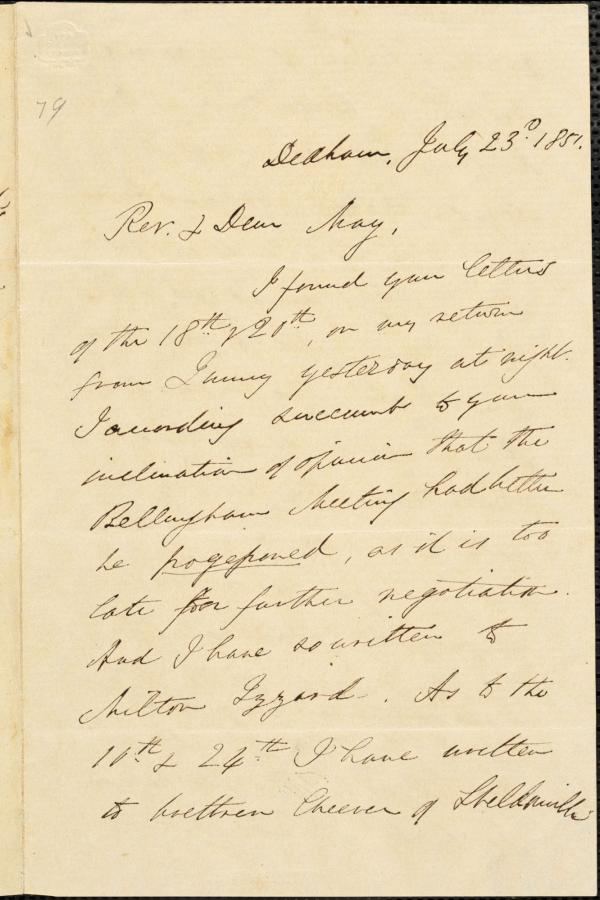 79
Dedham, July 23d. 1851.
Rev. & Dear May,
I found your letters
of the 18th. & 20th., on my return
from yesterday at night.
I according succumb to your
inclination of opinion that the
Bellingham Meeting had better
be progeponed, as it is too
late for further negotiation.
And I have so written to
Milton Izzard. As to the
10th. & 24th. I have written
to brethren Cheever of Sheldonville